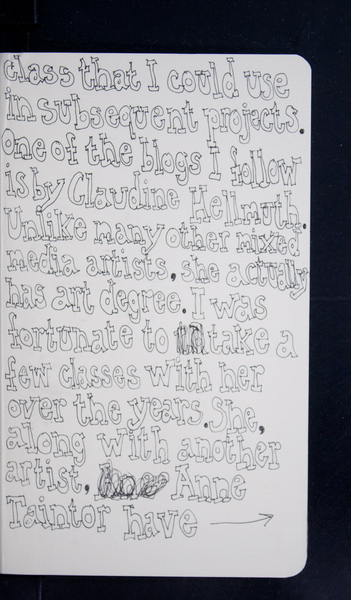 class that I could use
in subsequent projects.
One of the blogs I follow
is by Claudine Hellmuth.
Unlike many other mixed
media artists, she actually
has art degree. I was
fortunate to take a
few classes with her
over the years. She,
along with another
artist, Anne
Taintor have →